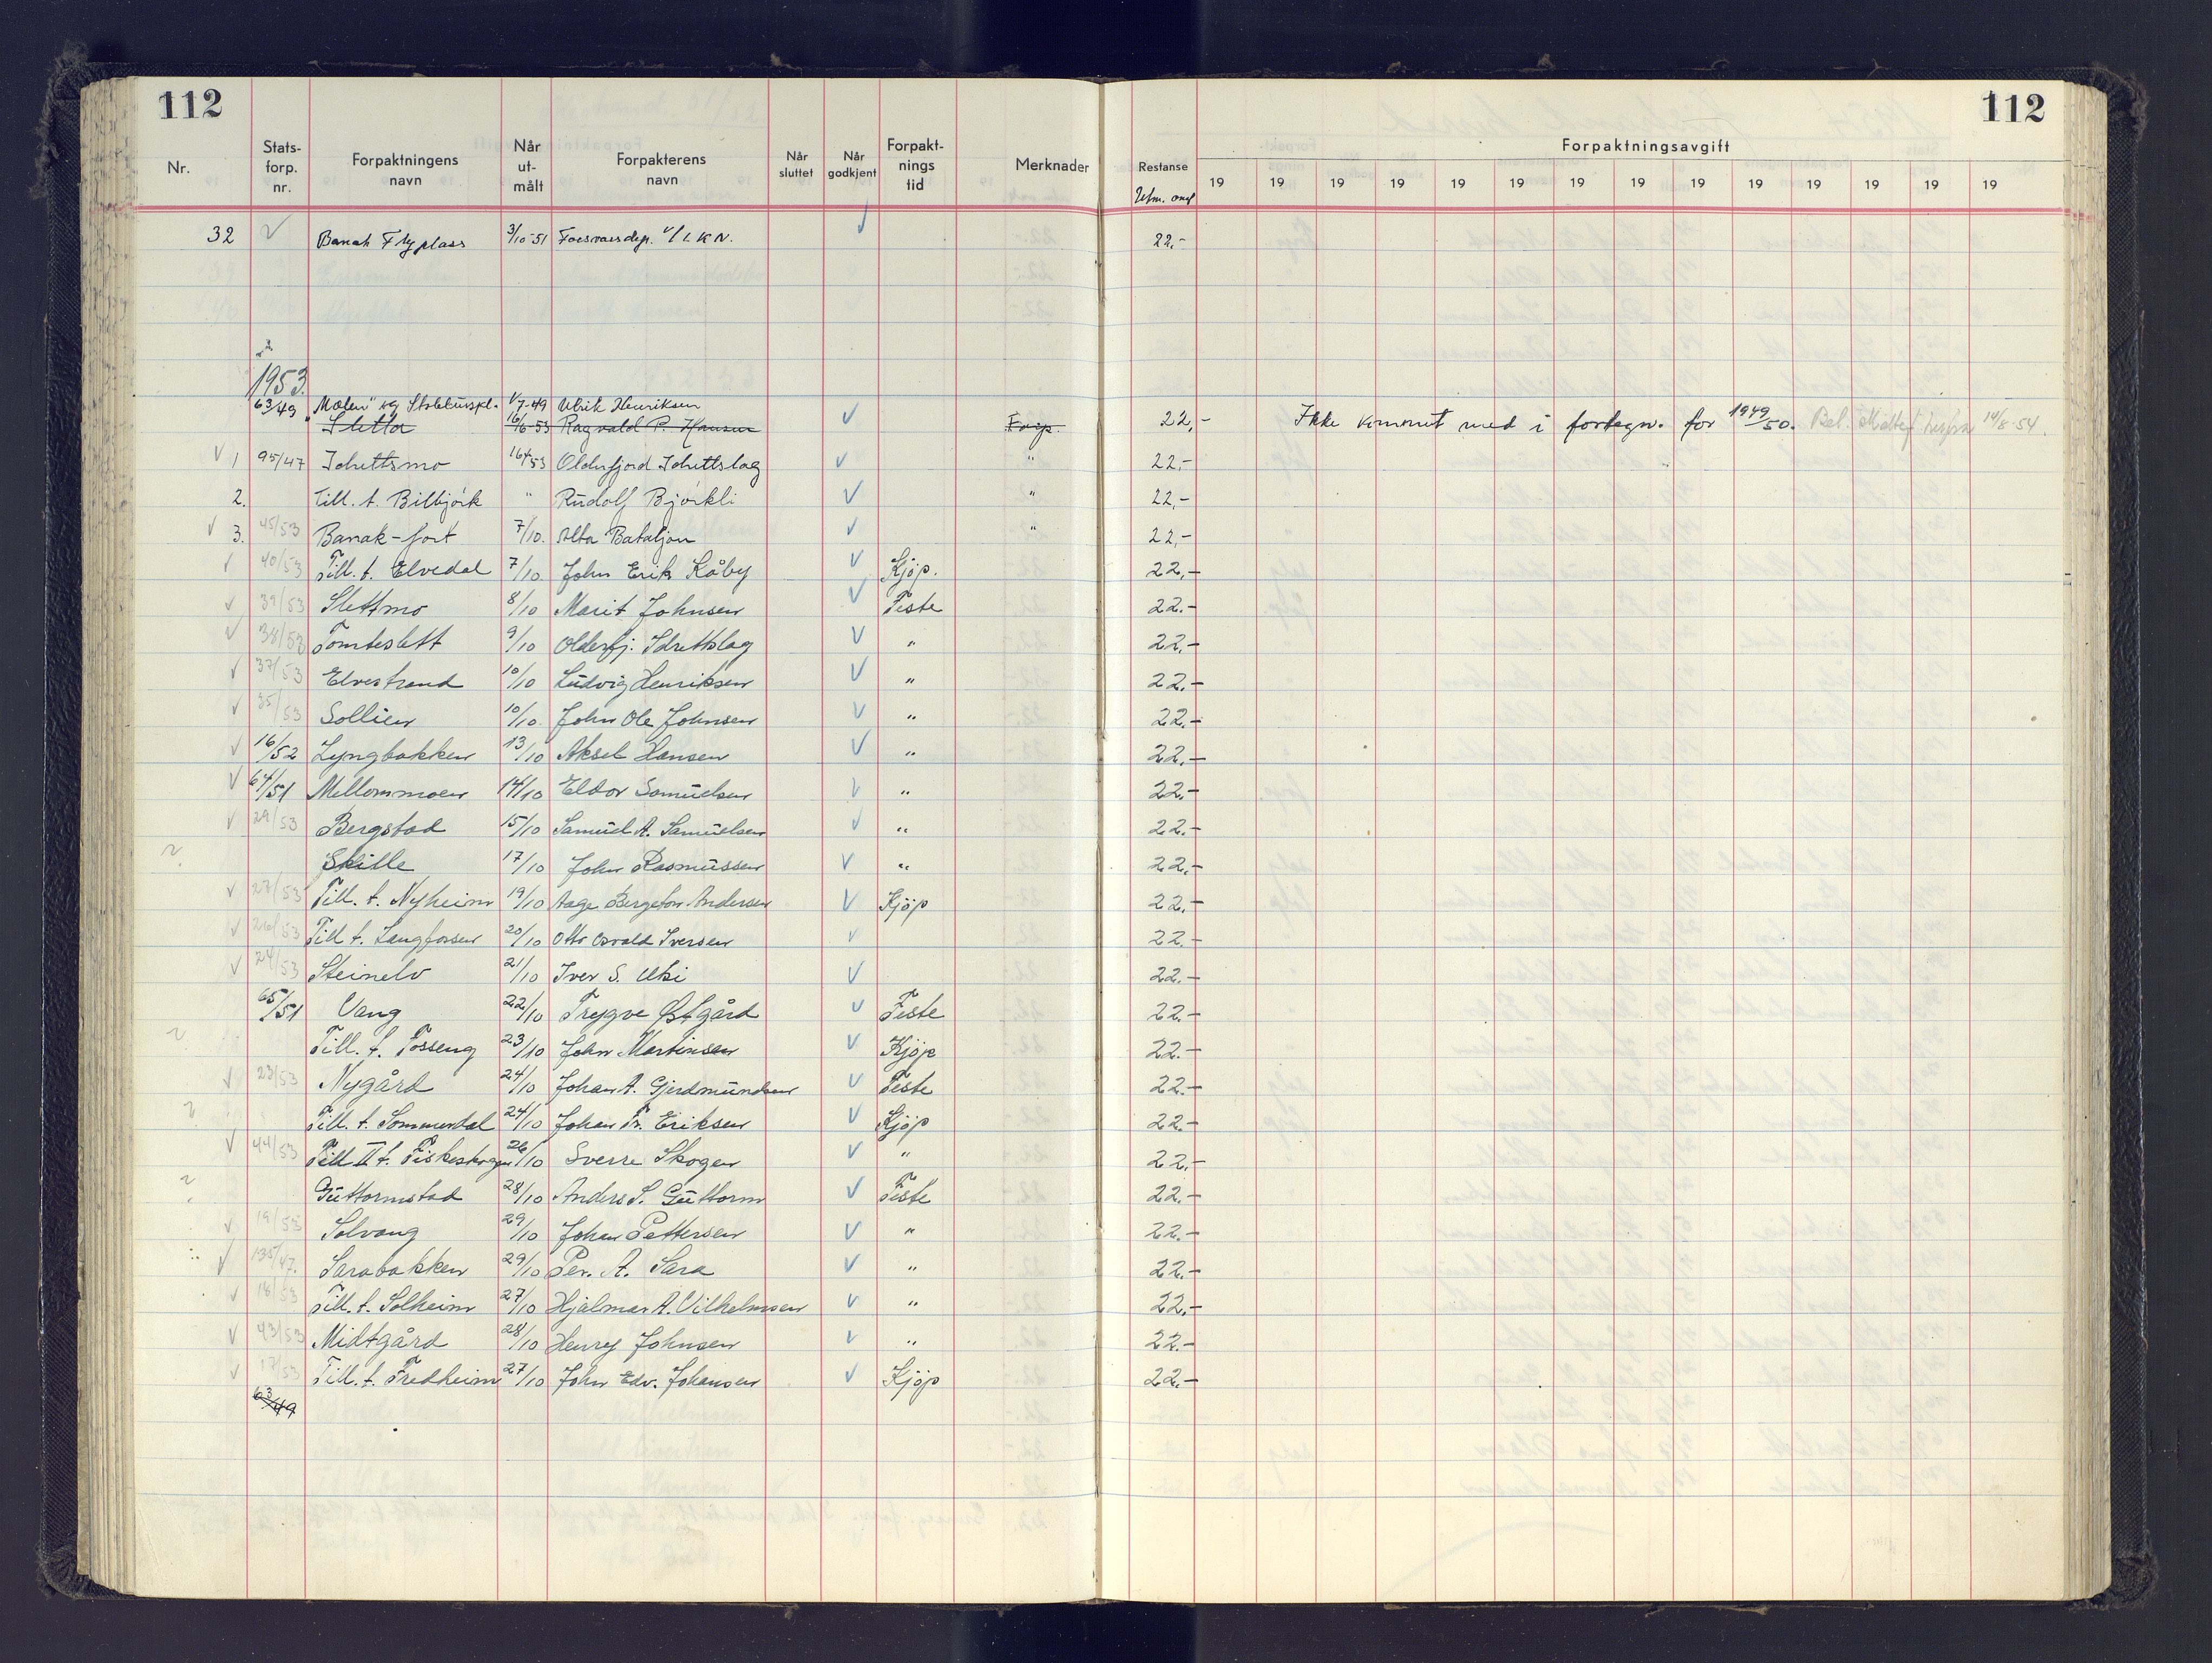 112
112
Nr. Stats-forp. nr. Forpaktningens navn Når ut-målt Forpakterens navn Når sluttet Når godkjent Forpakt-nings tid Merknader Restanse Forpaktningsavgift
19 19 19 19 19 19 19 19 19 19 19 19 19 19
32 Banak Flyplass 3/10-51 Forsvarsdep. v/ L K N. 22,-
1953.
63/49 "Molen" og 1/7-49 Ulrik Henriksen
Sletta 16/6-53 Ragnvald P. Hansen Forp. 22,- Ikke kommet med i fortegn. for 1949/50. 14/8-54.
1 95/47 Idrettsmo 16/6 53 Olderfjord Idrettslag " 22,-
2. Till. t. Bilbjörk " Rudolf Björkli " 22,-
3. 45/53 Banak-fort 7/10. Alta Bataljon " 22,-
40/53 Till. t. Elvedal 7/10. John Erik Låby Kjöp. 22,-
39/53 Slettmo 8/10 Marit Johnsen Feste 22.-
38/53 Tomteslett 9/10 Olderfj. Idrettslag " 22,-
37/53 Elvestrand 10/10 Ludvig Henriksen " 22.-
35/53 Sollien 10/10. John Ole Johnsen " 22.-
16/52 Lyngbakken 13/10 Aksel Hansen " 22,-
64/51 Mellommoen 14/10 Eldor Samuelsen " 22.-
29/53 Bergstad 15/10 Samuel A. Samuelsen " 22.-
Skille 17/10 John Rasmussen " 22,-
27/53 Till. t. Nyheim 19/10 Aage Bergeton Andersen Kjöp 22.-
26/53 Till t. Langfossen 20/10 Otto Osvald Iversen 22.-
24/53 Steinelv 21/10 Iver S. Utsi 22.-
65/51 Vang 22/10 Trygve Østgård Feste 22.-
Till. t. Fosseng 23/10 John Martinsen Kjöp 22.-
23/53 Nygård 24/10 Johan A. Gjerdmundsen Feste 22.-
Till. t. Sommerdal 24/10 Johan Fr. Eriksen Kjöp 22.-
44/53 Till II t. Fiskeskogen 26/10 Sverre Skogen " 22,-
Guttormstad 28/10 Anders S. Guttorm Feste 22.-
19/53 Solvang 29/10 Johan Pettersen " 22.-
135/47. Sarabakken 29/10 Per. A. Sara " 22.-
18/53 Till. t. Solheim 27/10 Hjalmar A. Vilhelmsen " 22,-
43/53 Midtgård 28/10 Henry Johnsen " 22.-
17/53 Till. t. Fredheim 27/10 John Edv. Johansen Kjöp 22.-
63/49